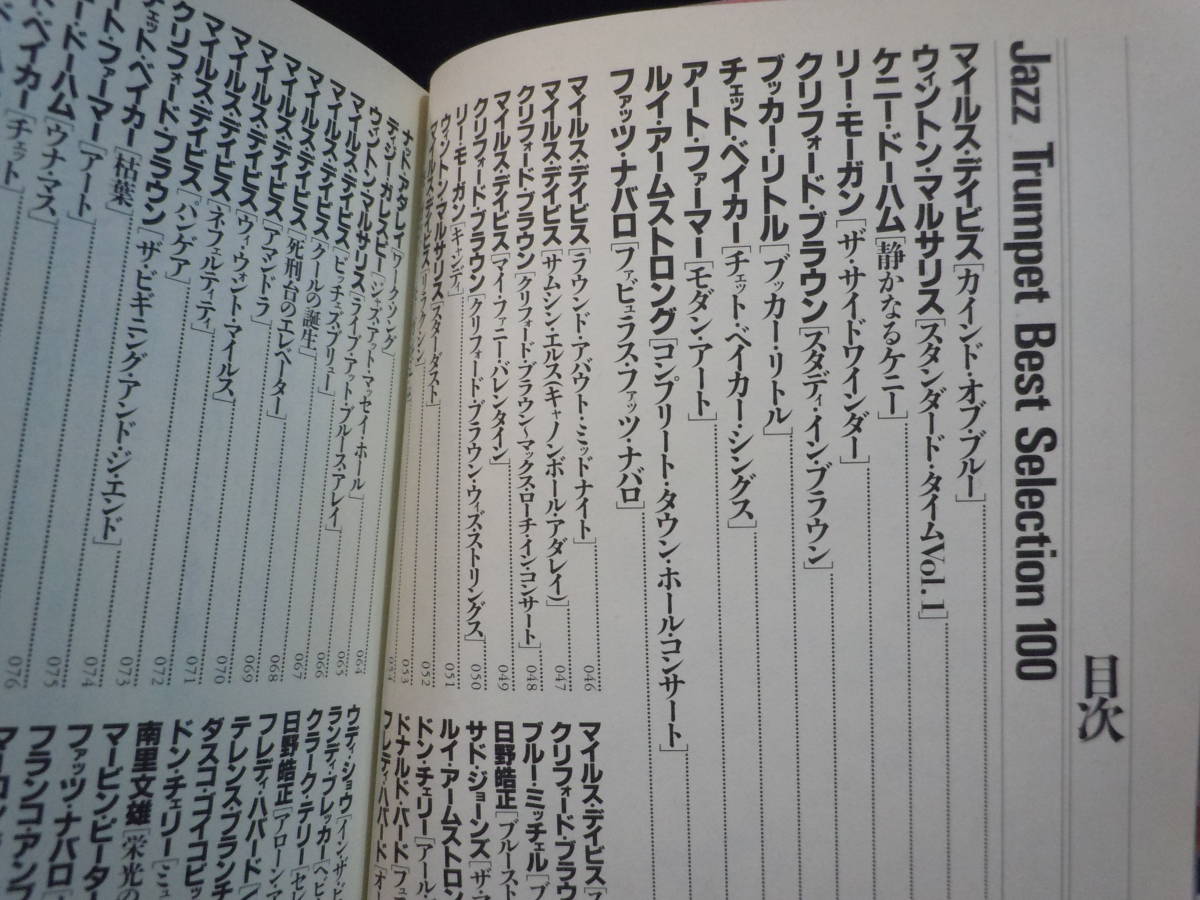 目次
Jazz Trumpet Best Selection 100
マイルス・デイビス[カインド・オブ・ブルー]
ウィントン・マルサリス[スタンダード・タイムVol.1]
ケニー・ドーハム[静かなるケニー]
リー・モーガン[ザ・サイドワインダー]
クリフォード・ブラウン[スタディ・イン・ブラウン]
ブッカー・リトル[ブッカー・リトル]
チェット・ベイカー[チェット・ベイカー・シングス]
アート・ファーマー[モダン・アート]
ルイ・アームストロング[コンプリート・タウン・ホール・コンサート]
ファッツ・ナバロ[ファビュラス・ファッツ・ナバロ]
マイルス・デイビス[ラウンド・アバウト・ミッドナイト] 046
マイルス・デイビス[サムシン・エルス(キャノンボール・アダレイ)] 047
クリフォード・ブラウン[クリフォード・ブラウン〜マックス・ローチ・イン・コンサート] 048
マイルス・デイビス[マイ・ファニー・バレンタイン] 049
クリフォード・ブラウン[クリフォード・ブラウン・ウィズ・ストリングス] 050
リー・モーガン[キャンディ] 051
ウィントン・マルサリス[スターダスト] 052
マイルス・デイビス[リラクシン] 053
マイルス・デイビス
クリフォード・ブラウ
ブルー・ミッチェル[ブ
日野皓正[ブルースト
サド・ジョーンズ[ザ・マ
ルイ・アームストロン
ドン・チェリー[アール・
ドナルド・バード[フュ
フレディ・ハバード[オー
ナット・アダレイ[ワーク・ソング]
ディジー・ガレスピー[ジャズ・アット・マッセイ・ホール] 064
ウィントン・マルサリス[ライブ・アット・ブルース・アレイ] 065
マイルス・デイビス[ビッチェズ・ブリュー] 066
マイルス・デイビス[クールの誕生] 067
マイルス・デイビス[死刑台のエレベーター] 068
マイルス・デイビス[アマンドラ] 069
マイルス・デイビス[ウィ・ウォント・マイルス] 070
マイルス・デイビス[ネフェルティティ] 071
マイルス・デイビス[パンゲア] 072
クリフォード・ブラウン[ザ・ビギニング・アンド・ジ・エンド] 073
チェット・ベイカー[枯葉] 074
ート・ファーマー[アート] 075
ー・ドーハム[ウナ・マス] 076
ト・ベイカー[チェット]
ウディ・ショウ[イン・ザ・ビ
ランディ・ブレッカー[ヘビ
クラーク・テリー[セレ
日野皓正[アローン・ア
フレディ・ハバード
テレンス・ブランチ
ダスコ・ゴイコビッ
ドン・チェリー[ミュ
南里文雄[栄光の
マービン・ピータ
ファッツ・ナバロ
フランコ・アンブ